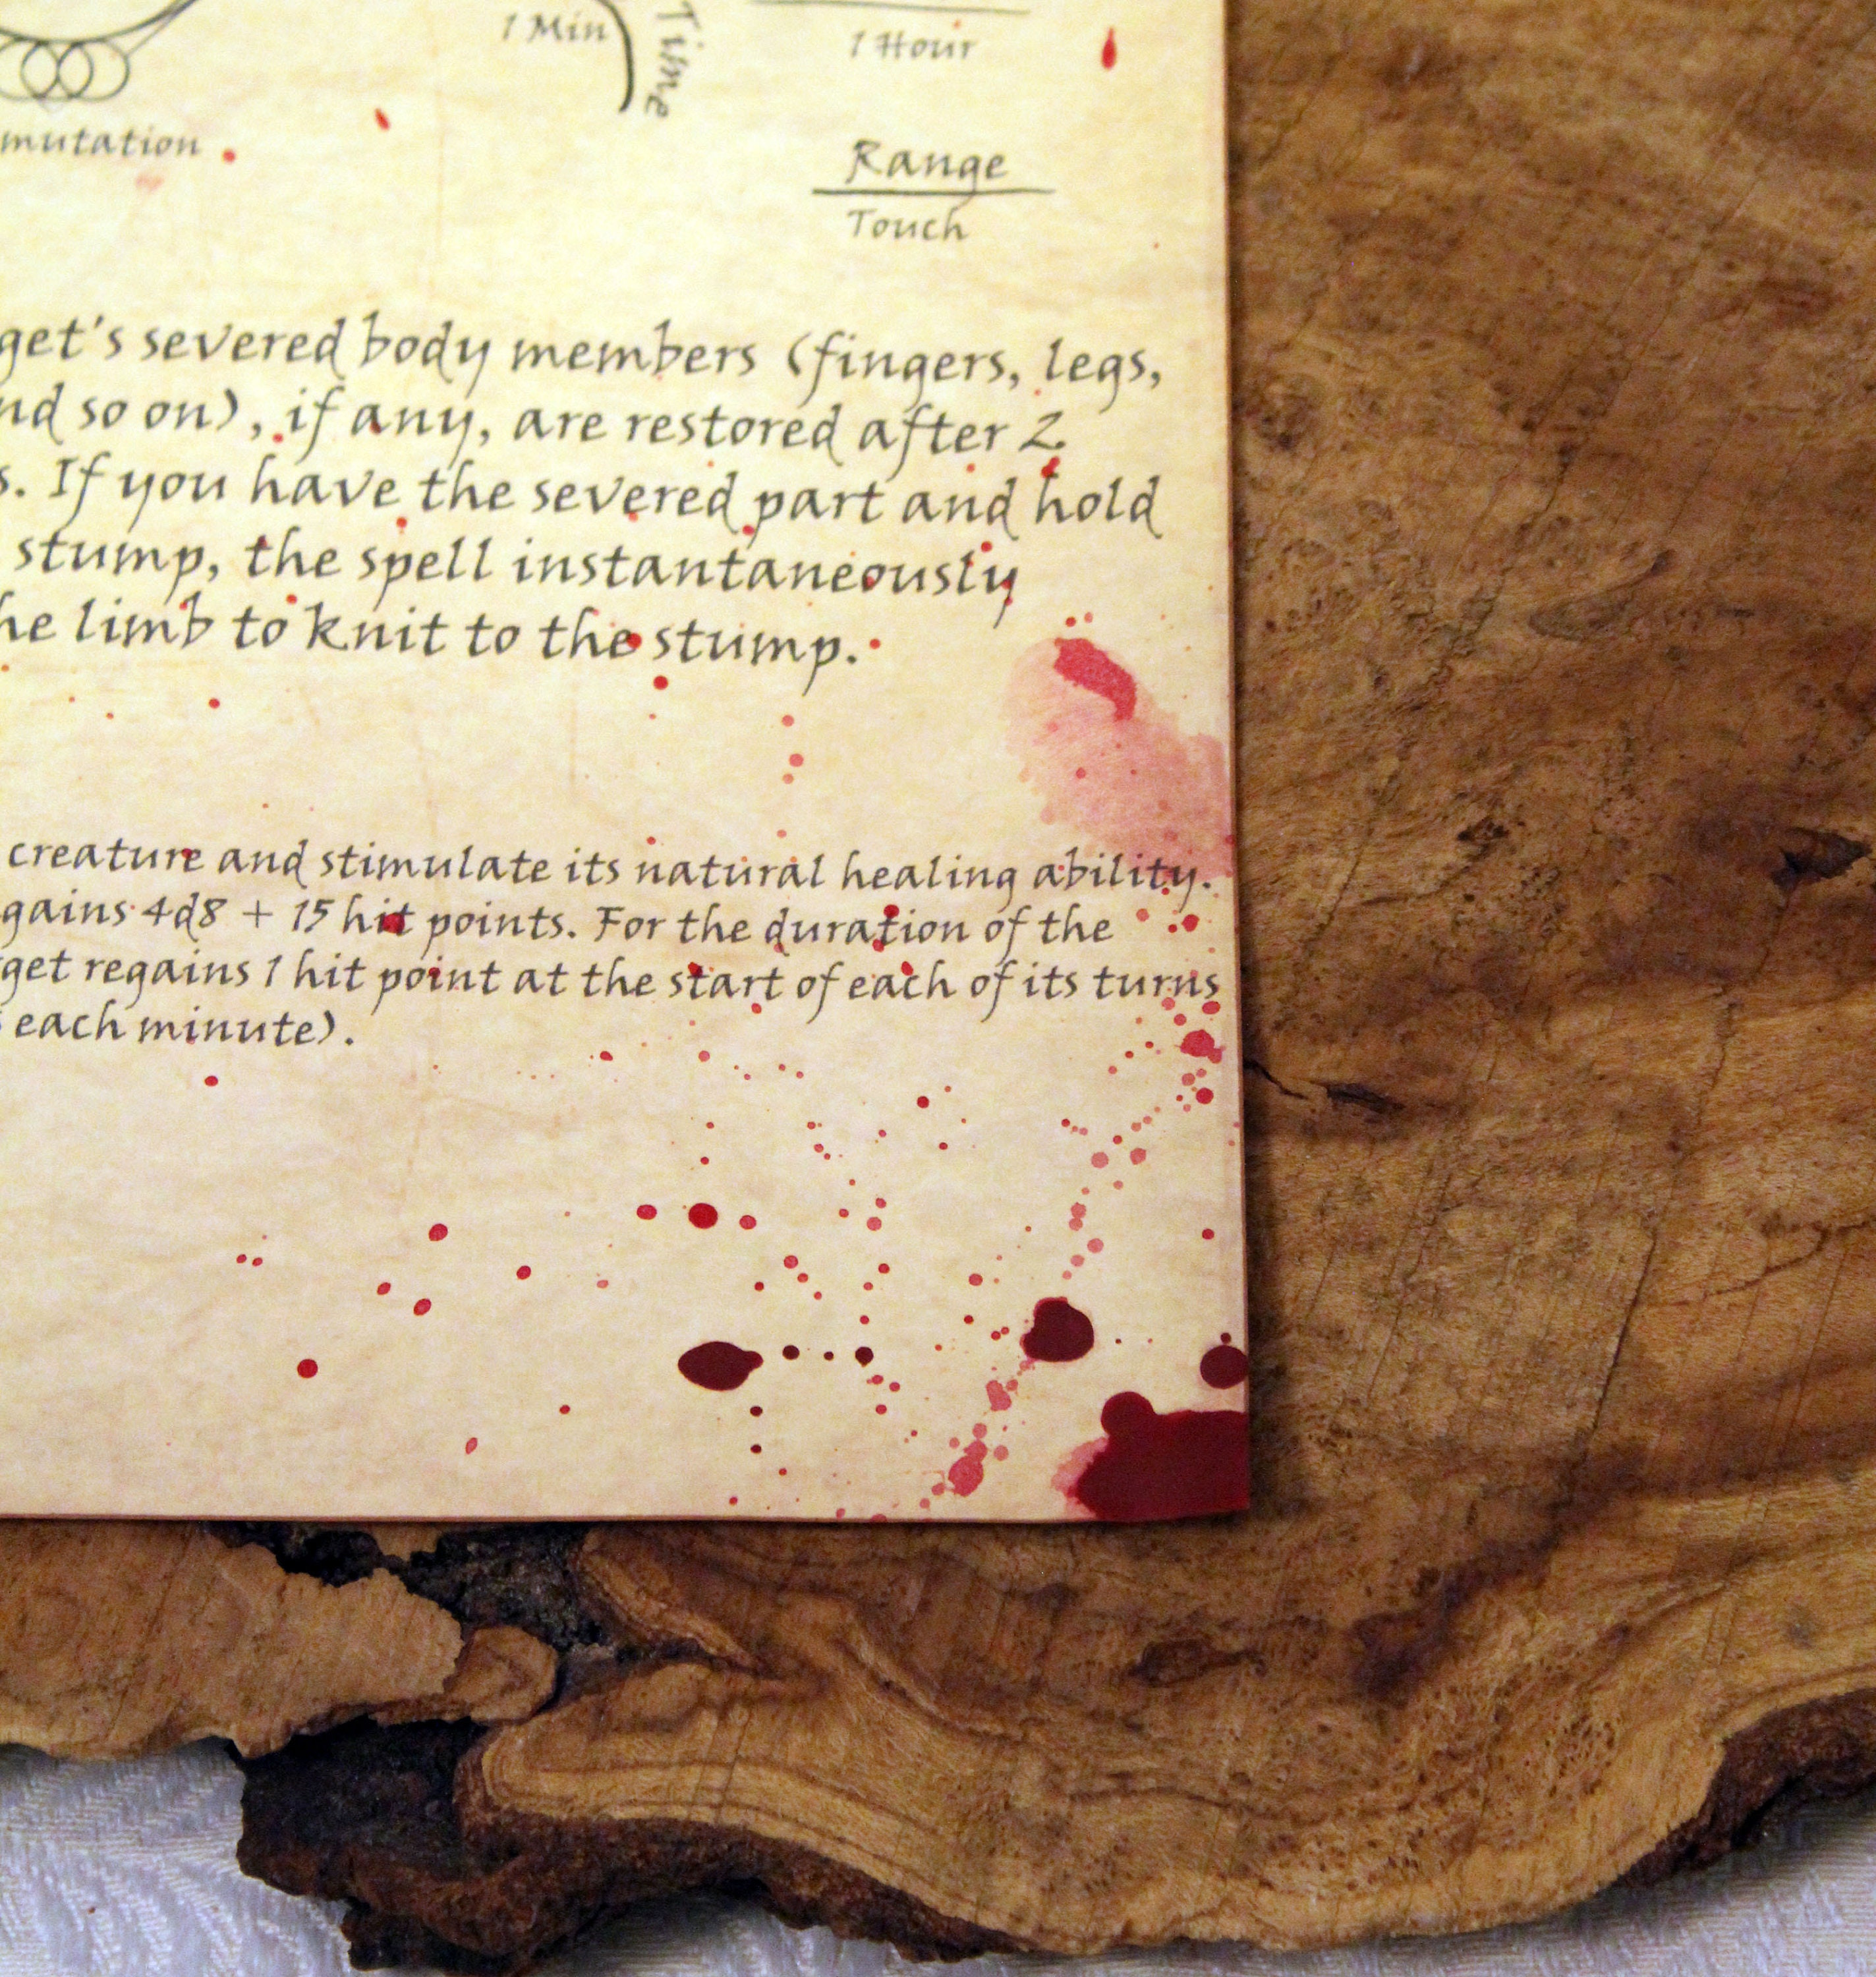 1 Min
Time
1 Hour
mutation
Range
Touch
get's severed body members (fingers, legs,
nd so on), if any, are restored after 2
s. If you have the severed part and hold
stump, the spell instantaneously
he limb to knit to the stump.
creature and stimulate its natural healing ability.
gains 4d8 + 15 hit points. For the duration of the
get regains 1 hit point at the start of each of its turns
each minute).